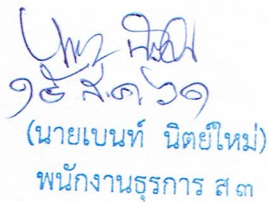 ๑๕ ส.ค. ๖๑
(นายเบนท์ นิตย์ใหม่)
พนักงานธุรการ ส ๓